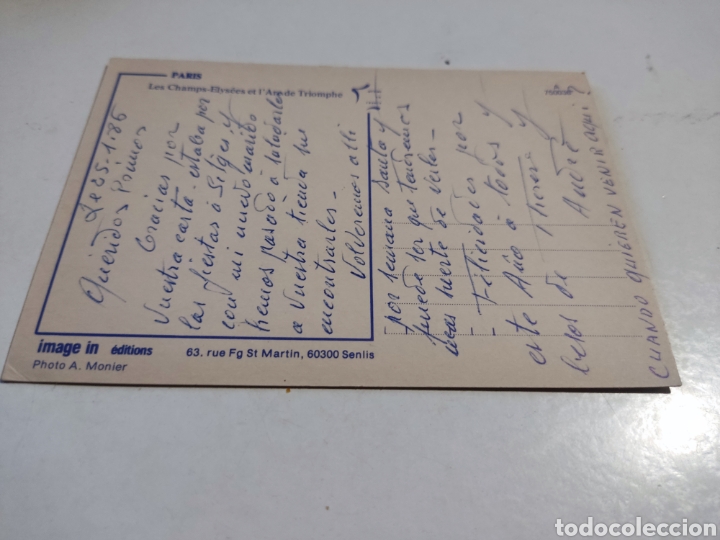 PARIS
Les Champs-Elysées et l'Arc de Triomphe
Le 25.1.86
Queridos Primos
Gracias por
vuestra carta. estaba por
las fiestas à Sitges y
con mi nuevo marido
hemos pasado à
a vuestra tienda sin
encontrarles -
Volveremos alli
por semana santa y
puede ser que tendremos
mas suerte de veles -
- Felicidades por
este Año à todos y
besos de Therese y
André
CUANDO QUIEREN VENIR AQUI?
image in éditions
63, rue Fg St Martin, 60300 Senlis
Photo A. Monier
todocoleccion